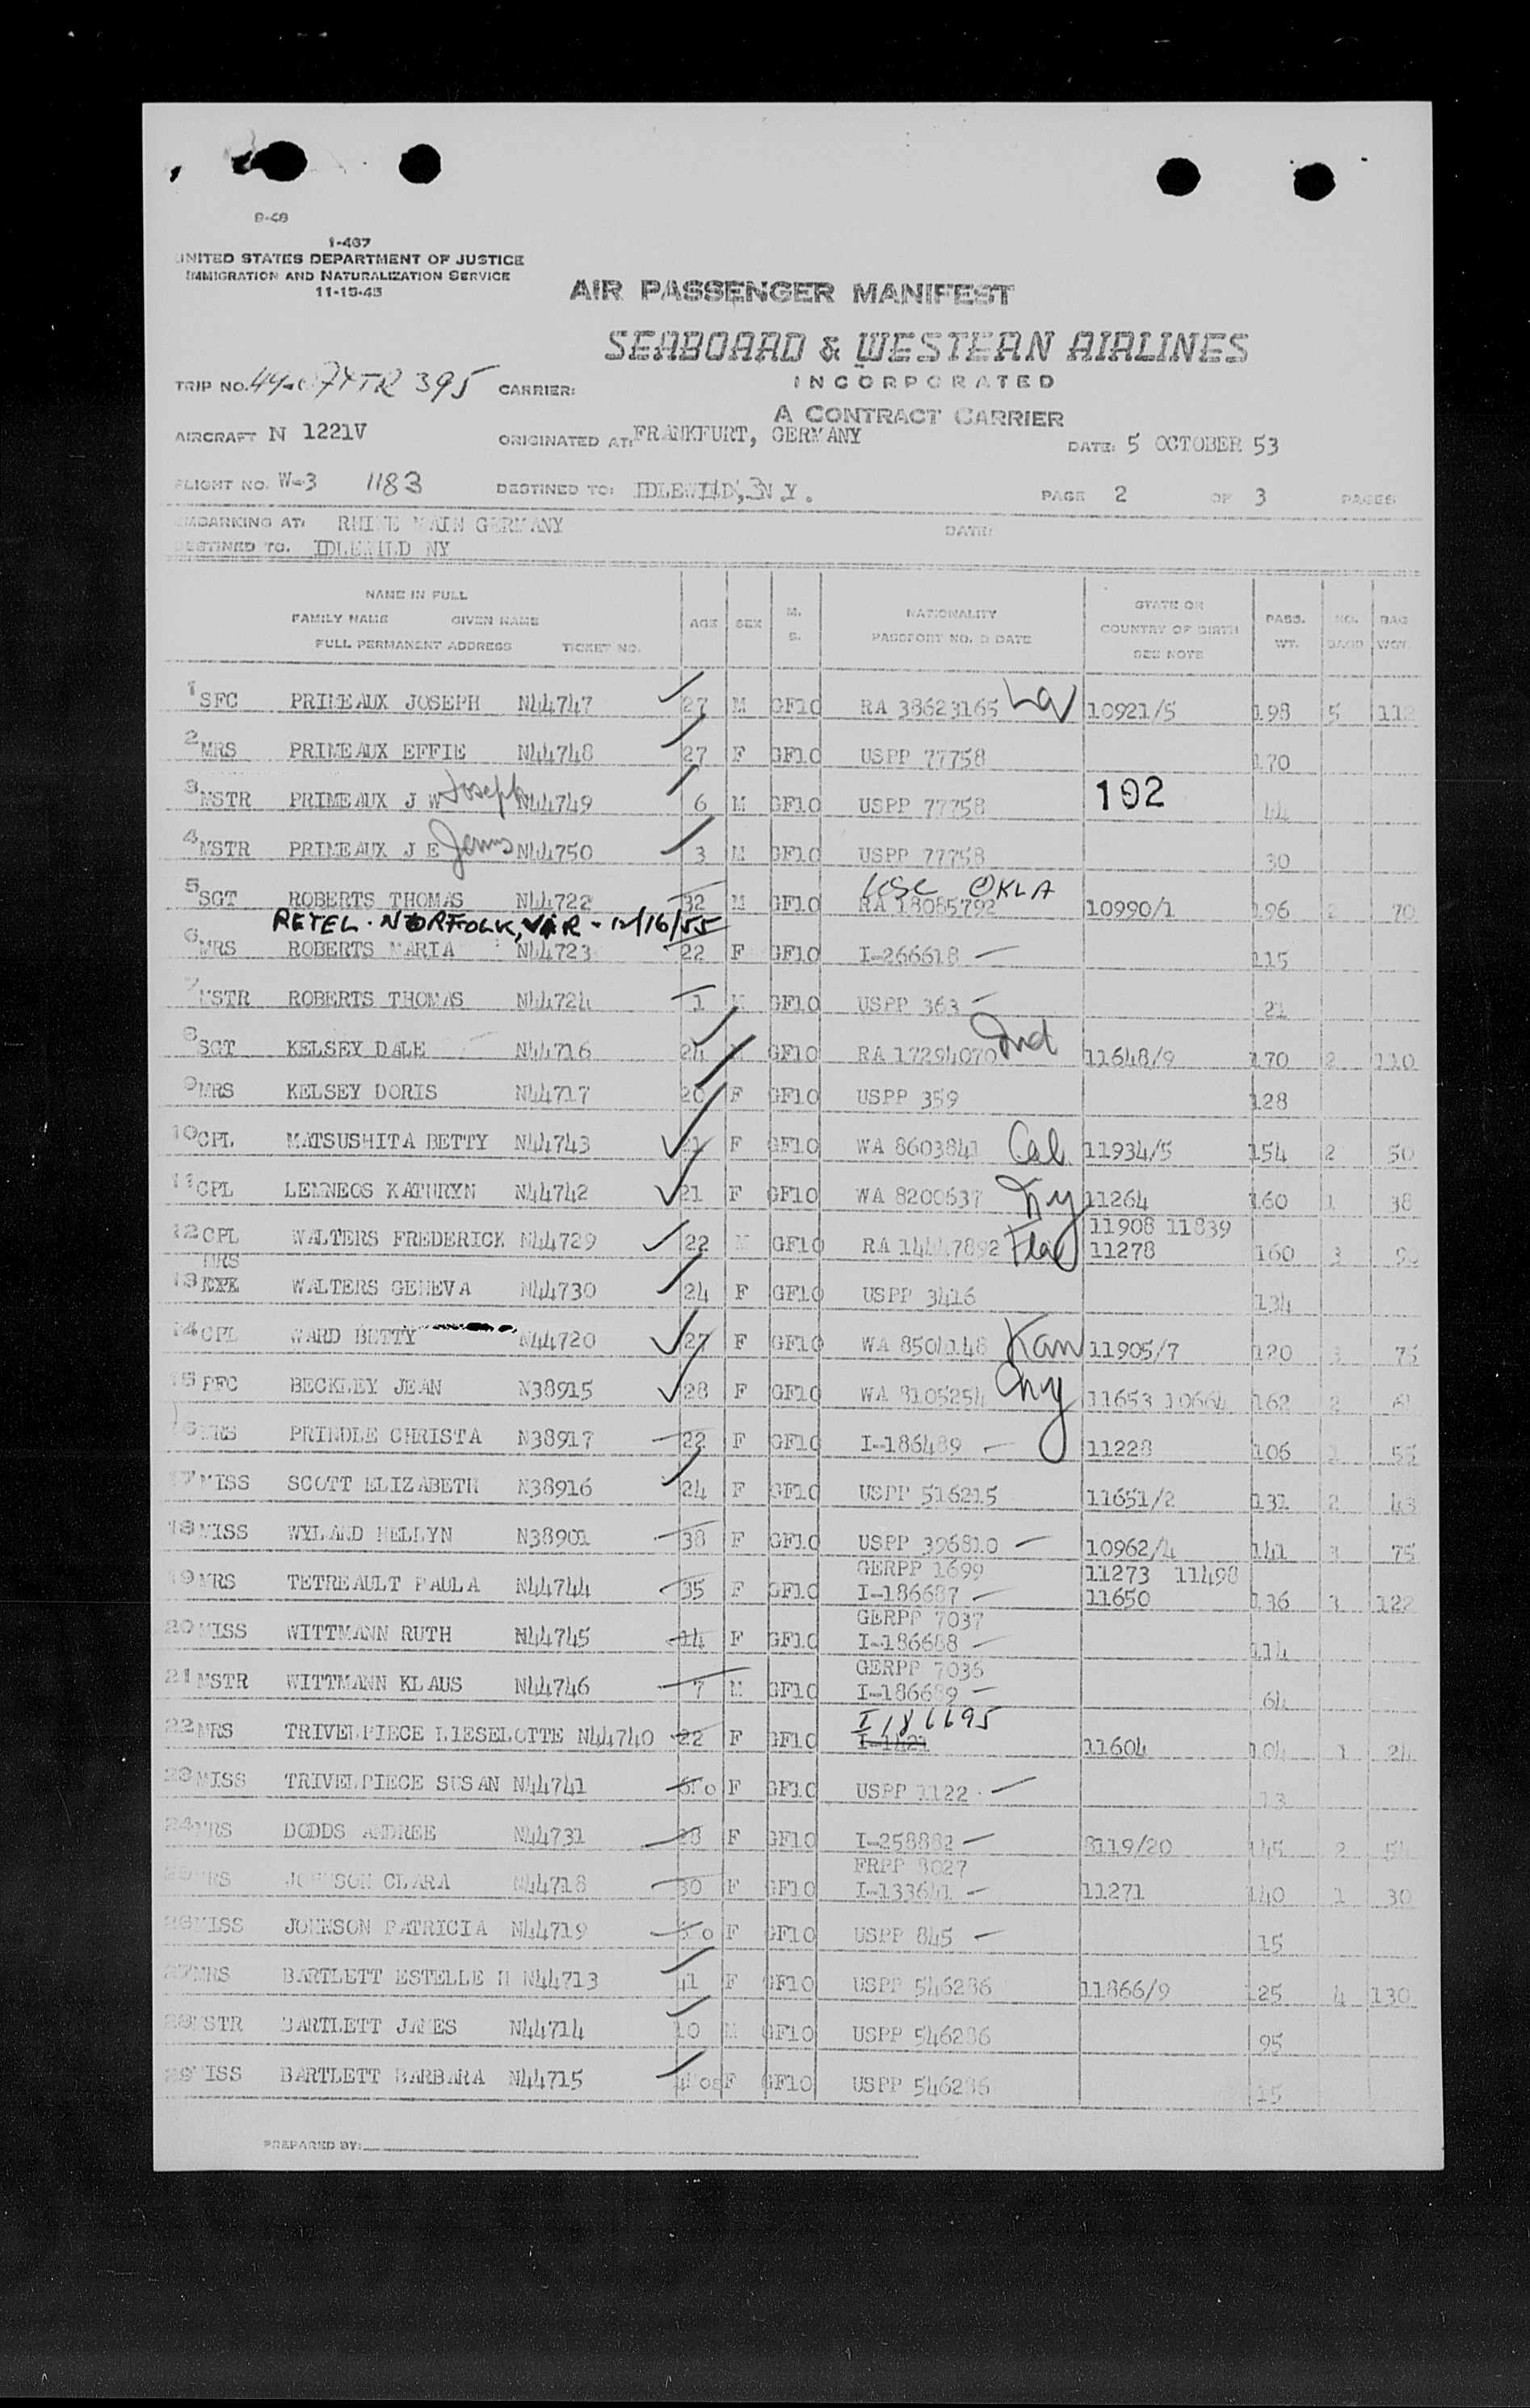 B-48
I-467
UNITED STATES DEPARTMENT OF JUSTICE
IMMIGRATION AND NATURALIZATION SERVICE
11-15-45
AIR PASSENGER MANIFEST
SEABOARD & WESTERN AIRLINES
INCORPORATED
A CONTRACT CARRIER
TRIP NO. TR 395 CARRIER:
AIRCRAFT N 1221V ORIGINATED AT: FRANKFURT, GERMANY DATE: 5 OCTOBER 53
FLIGHT NO. W-3 1183 DESTINED TO: IDLEWILD, N.Y. PAGE 2 OF 3 PAGES
EMBARKING AT: RHINE MAIN GERMANY DATE:
DESTINED TO. IDLEWILD NY
NAME IN FULL
FAMILY NAME GIVEN NAME
FULL PERMANENT ADDRESS TICKET NO.
AGE SEX M. S. NATIONALITY PASSPORT NO. & DATE STATE OR COUNTRY OF BIRTH SEE NOTE PASS. WT. NO. BAGS BAG WGT.
1 SFC PRIMEAUX JOSEPH N44747 27 M GF10 RA 38623165 La 10921/5 198 5 112
2 MRS PRIMEAUX EFFIE N44748 27 F GF10 USPP 77758 170
3 MSTR PRIMEAUX J W Joseph N44749 6 M GF10 USPP 77758 102 44
4 MSTR PRIMEAUX J E James N44750 3 M GF10 USPP 77758 30
5 SGT ROBERTS THOMAS N44722 32 M GF10 USC OKLA RA 18085792 10990/1 196 2 70
RETEL. NORFOLK, VAR - 12/16/55
6 MRS ROBERTS MARIA N44723 22 F GF10 I-266618 115
7 MSTR ROBERTS THOMAS N44724 1 M GF10 USPP 363 21
8 SGT KELSEY DALE N44716 24 M GF10 RA 17294070 Ind 11648/9 170 2 110
9 MRS KELSEY DORIS N44717 20 F GF10 USPP 359 128
10 CPL MATSUSHITA BETTY N44743 21 F GF10 WA 8603841 Cal 11934/5 154 2 50
11 CPL LEMNEOS KATHRYN N44742 21 F GF10 WA 8200637 Ny 11264 160 1 38
12 CPL WALTERS FREDERICK N44729 22 M GF10 RA 14447892 Fla 11908 11839 11278 160 3 90
13 MRS WALTERS GENEVA N44730 24 F GF10 USPP 3416 134
14 CPL WARD BETTY N44720 27 F GF10 WA 8504148 Kan 11905/7 120 3 75
15 PFC BECKLEY JEAN N38915 28 F GF10 WA 8105254 Ny 11653 10664 162 2
16 MRS PRINDLE CHRISTA N38917 22 F GF10 I-186489 11228 106 55
17 MISS SCOTT ELIZABETH N38916 24 F GF10 USPP 516215 11651/2 131 2 43
18 MISS WYLAND HELLYN N38901 38 F GF10 USPP 396810 10962/4 141 3 75
19 MRS TETREAULT PAULA N44744 35 F GF10 GERPP 1699 I-186687 11273 11498 11650 136 3 122
20 MISS WITTMANN RUTH N44745 14 F GF10 GERPP 7037 I-186688 114
21 MSTR WITTMANN KLAUS N44746 7 M GF10 GERPP 7036 I-186689 64
22 MRS TRIVELPIECE LIESELOTTE N44740 22 F GF10 I 186695 11604 104 1 24
23 MISS TRIVELPIECE SUSAN N44741 F GF10 USPP 1122 13
24 MRS DODDS ANDREE N44731 28 F GF10 I-258882 8119/20 145 2 54
25 MRS JOHNSON CLARA N44718 30 F GF10 FRPP 8027 I-133641 11271 140 1 30
26 MISS JOHNSON PATRICIA N44719 F GF10 USPP 845 15
27 MRS BARTLETT ESTELLE H N44713 41 F GF10 USPP 546286 11866/9 125 4 130
28 MSTR BARTLETT JAMES N44714 10 M GF10 USPP 546286 95
29 MISS BARTLETT BARBARA N44715 F GF10 USPP 546286 15
PREPARED BY: